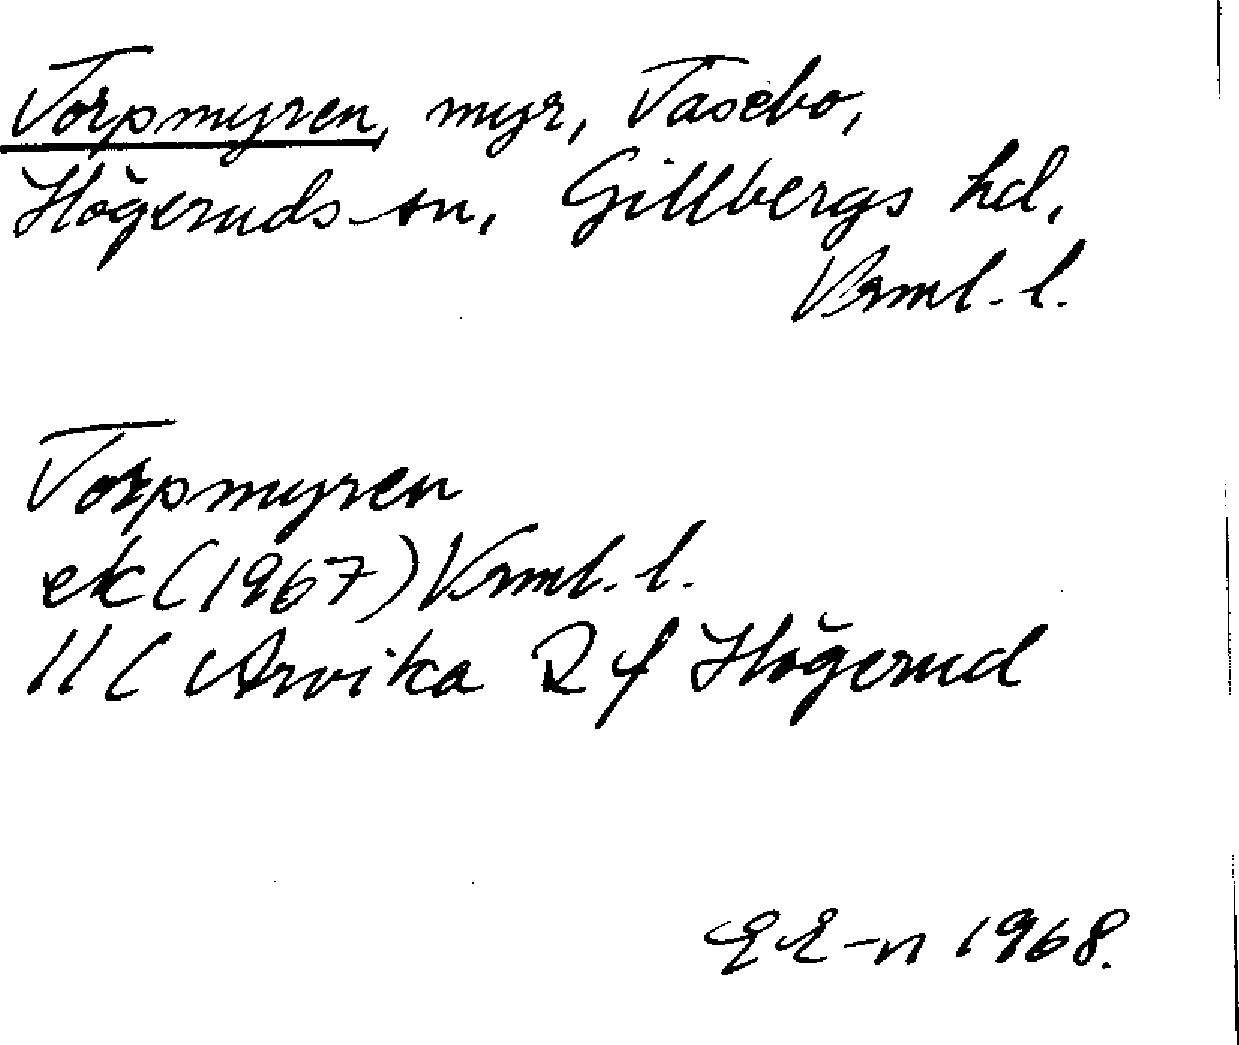 Torpmyren, myr, Tasebo,
Högeruds sn, Gillbergs hd,
Vrml. l.
Torpmyren
ek (1967) Vrml. l.
11 C Arvika 2 f Högerud
E E-n 1968.